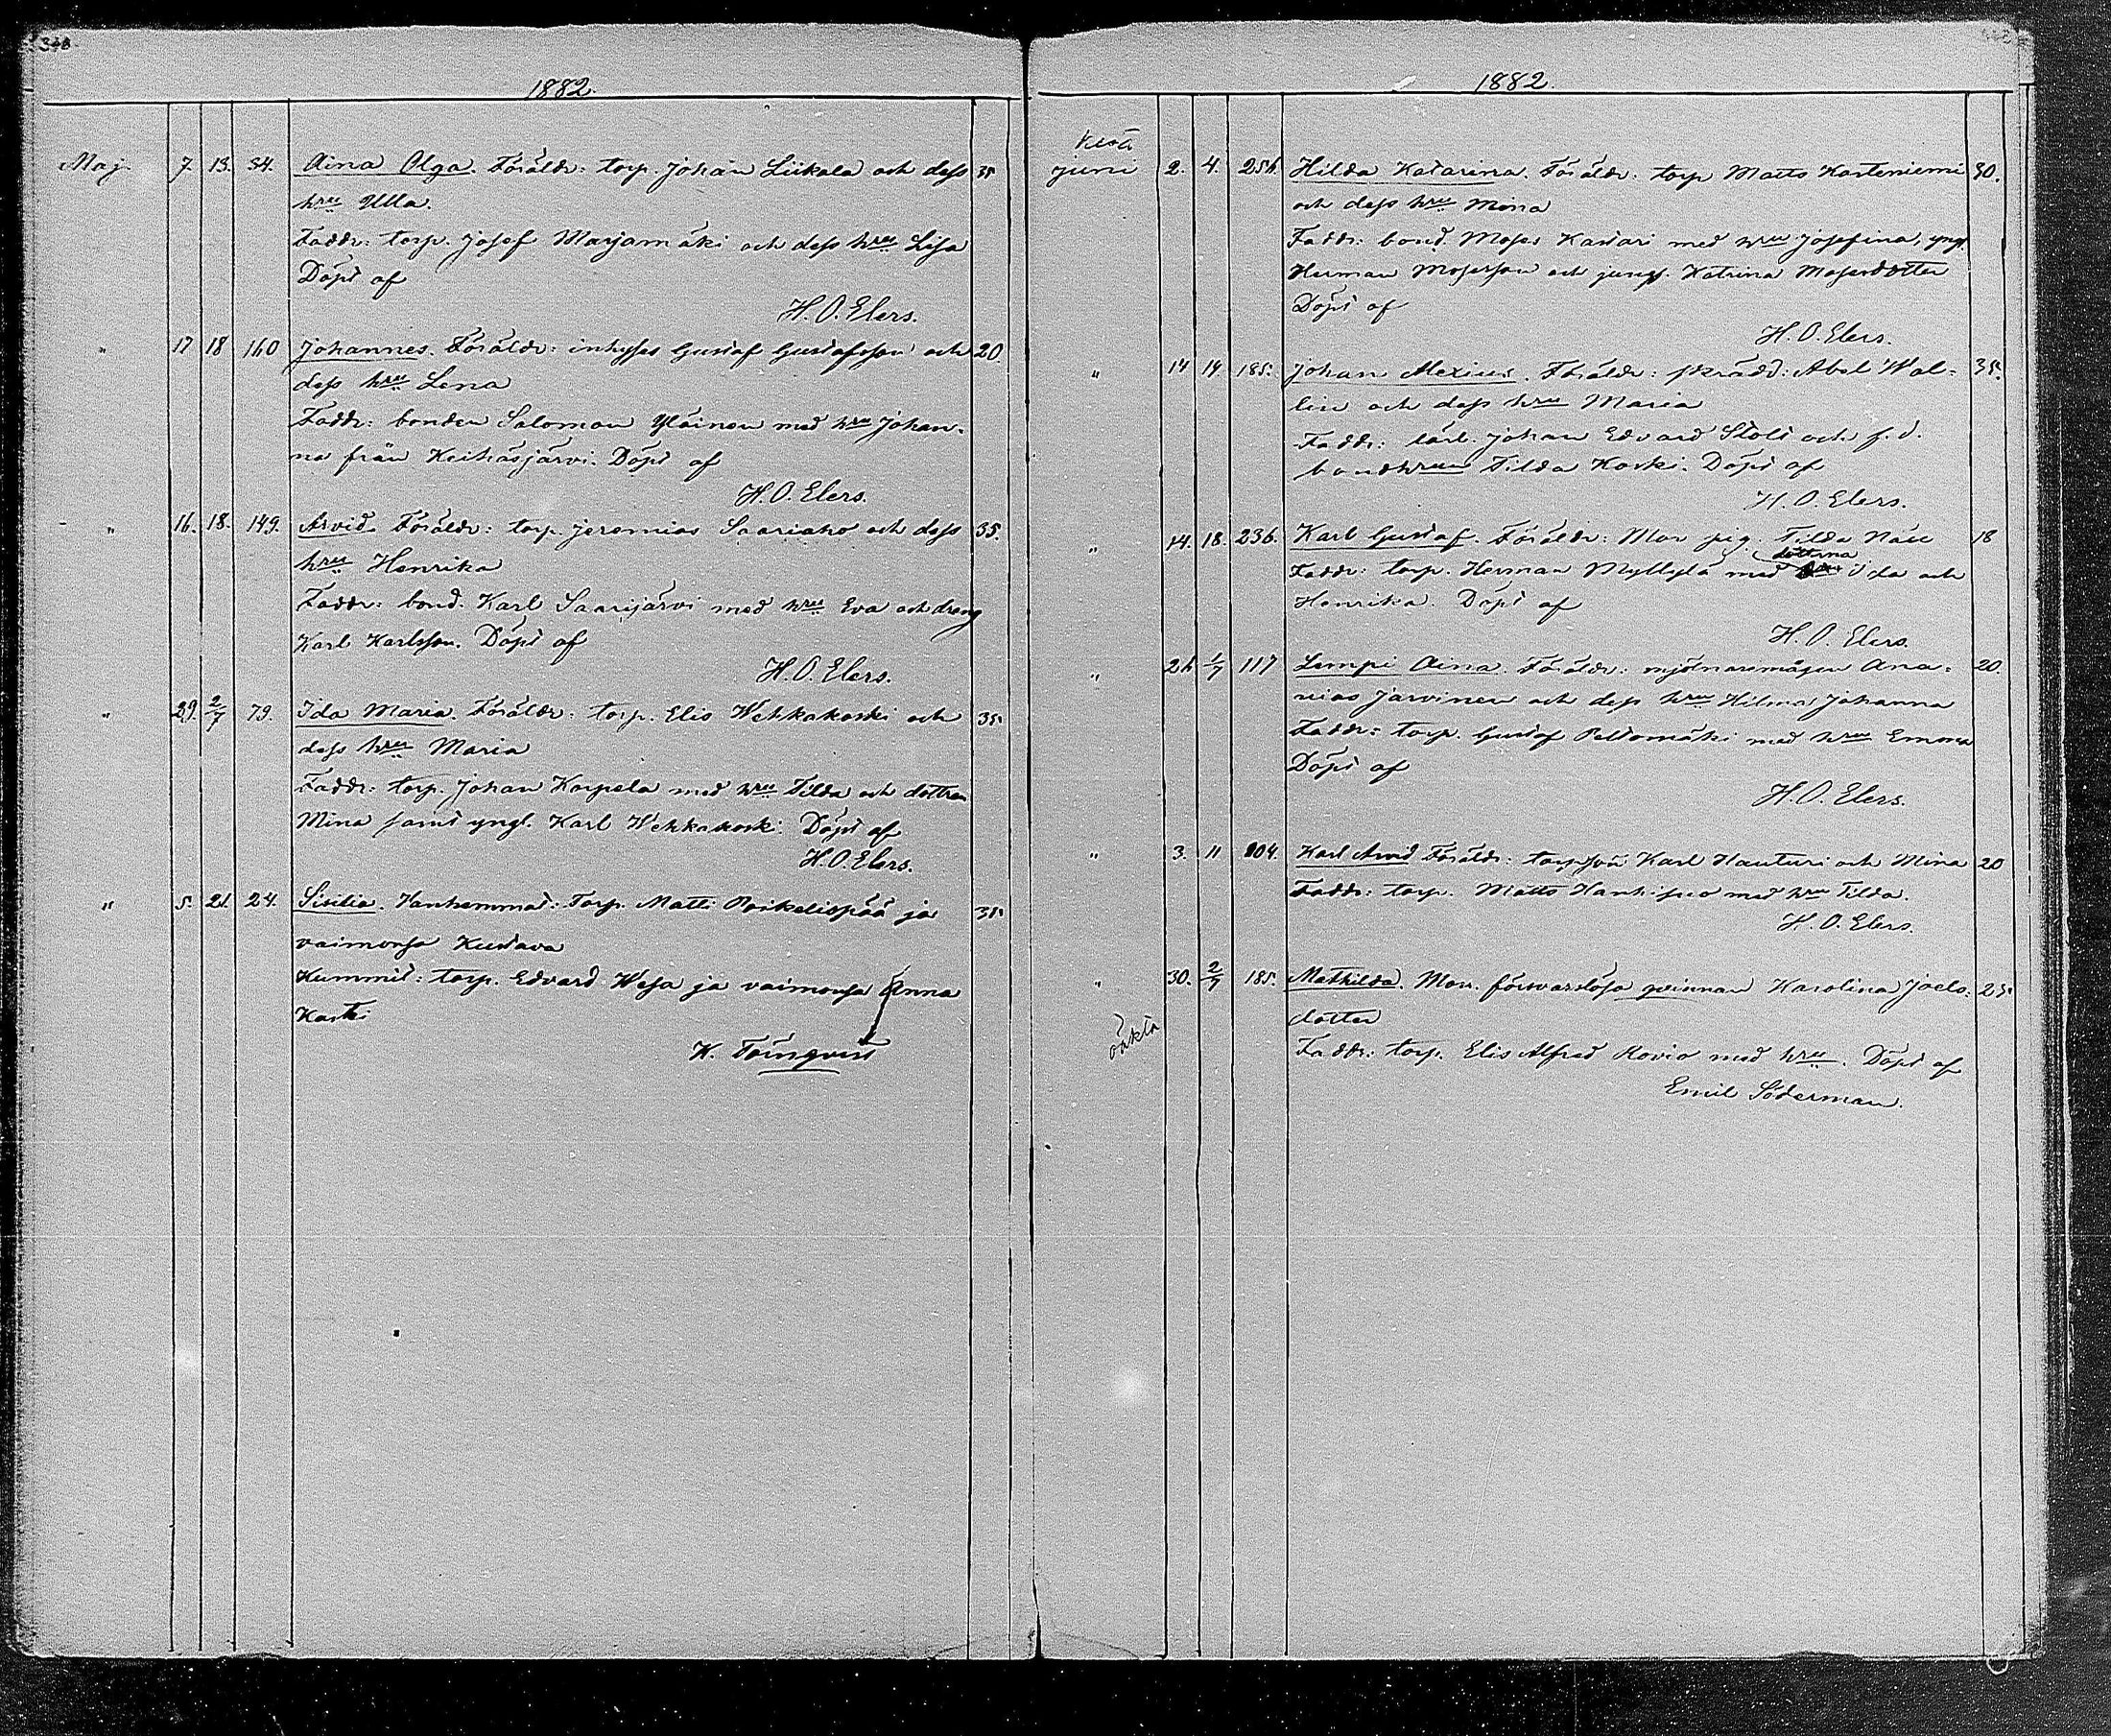 348
1882.
Maj. 7. 13. 34. Aina Olga. Föräldr: torp. Johan Liikala och dess 35
hru Ulla.
Faddr: torp. Josef Marjamäki och dess hru Lisa
Döpt af
H. O. Elers.
" 17 18 160 Johannes. Föräldr: inhyses Gustaf Gustafsson och 20.
dess hru Lena
Faddr: bonden Salomon Yläinen med hru Johan-
na från Keihäsjärvi. Döpt af
H. O. Elers.
" 16. 18. 149. Arvid. Föräldr: torp. Jeremias Saariaho och dess 35.
hru Henrika
Faddr: bond. Karl Saarijärvi med hru Eva och dreng
Karl Karlsson. Döpt af
H. O. Elers.
" 29. 2/7 79. Ida Maria. Föräldr: torp. Elis Wehkakoski och 35
dess hru Maria
Faddr: torp. Johan Korpela med hru Tilda och dottren
Mina samt yngl. Karl Wehkakoski. Döpt af
H. O. Elers.
" 5. 21. 24. Sisilia. Vanhemmat: Torp. Matti Poikelispää ja 35
vaimonsa Kustava
Kummit: torp. Edvard Wesa ja vaimonsa Anna
Koski
K. Törnqvist
1882.
Kesä
juni 2. 4. 256. Hilda Katarina. Föräldr: torp Matts Kosteniemi 30.
och dess hru Mina
Faddr: bond. Moses Kassari med hru Josefina, yngl.
Herman Mosesson och jungf. Katrina Mosesdotter
Döpt af
H. O. Elers.
" 14 14. 185. Johan Alexius. Föräldr: skrädd: Abel Wal- 35.
lin och dess hru Maria
Faddr: lärl. Johan Edvard Stolt och f. d.
bondhrun Tilda Koski. Döpt af
H. O. Elers.
" 14. 18. 236. Karl Gustaf. Föräldr: Mor pig. Tilda Näsi 18
döttrna
Faddr: torp. Herman Myllylä med Ida och
Henrika. Döpt af
H. O. Elers.
" 26 1/7 117 Lempi Aina. Föräldr: mjölnaremågen Ana- 20.
nias Järvinen och dess hru Hilma Johanna
Faddr: torp. Gustaf Peltomäki med hru Emma
Döpt af
H. O. Elers.
" 3. 11 104. Karl Arvid Föräldr: torpson Karl Hauturi och Mina 20
Faddr: torp. Matts Hanhisuo med hru Tilda.
H. O. Elers.
" 30. 2/7 185. Mathilda. Mor. försvarslösa qvinnan Karolina Joels- 25
oäkta dotter
Faddr: torp. Elis Alfred Rovio med hru. Döpt af
Emil Söderman.